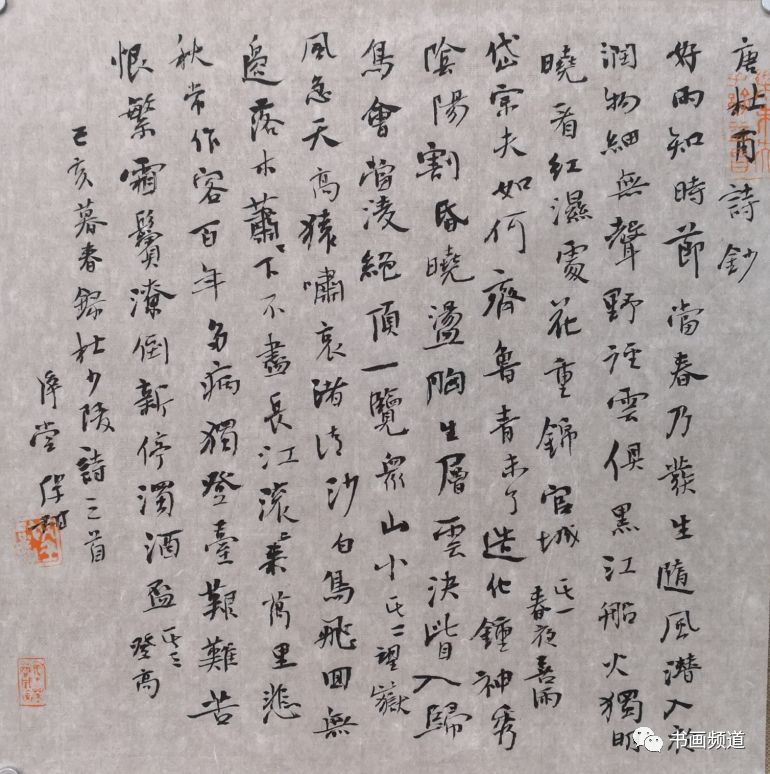 唐杜甫詩鈔
好雨知時節當春乃發生隨風潛入夜
潤物細無聲野徑雲俱黑江船火獨明
曉看紅濕處花重錦官城 其一 春夜喜雨
岱宗夫如何齊魯青未了造化鍾神秀
陰陽割昏曉盪胸生層雲決眥入歸
鳥會當淩絕頂一覽眾山小 其二 望嶽
風急天高猿嘯哀渚清沙白鳥飛回無
邊落木蕭〻下不盡長江滾〻來萬里悲
秋常作客百年多病獨登臺艱難苦
恨繁霜鬢潦倒新停濁酒盃 其三 登高
己亥暮春錄杜少陵詩三首
書画频道